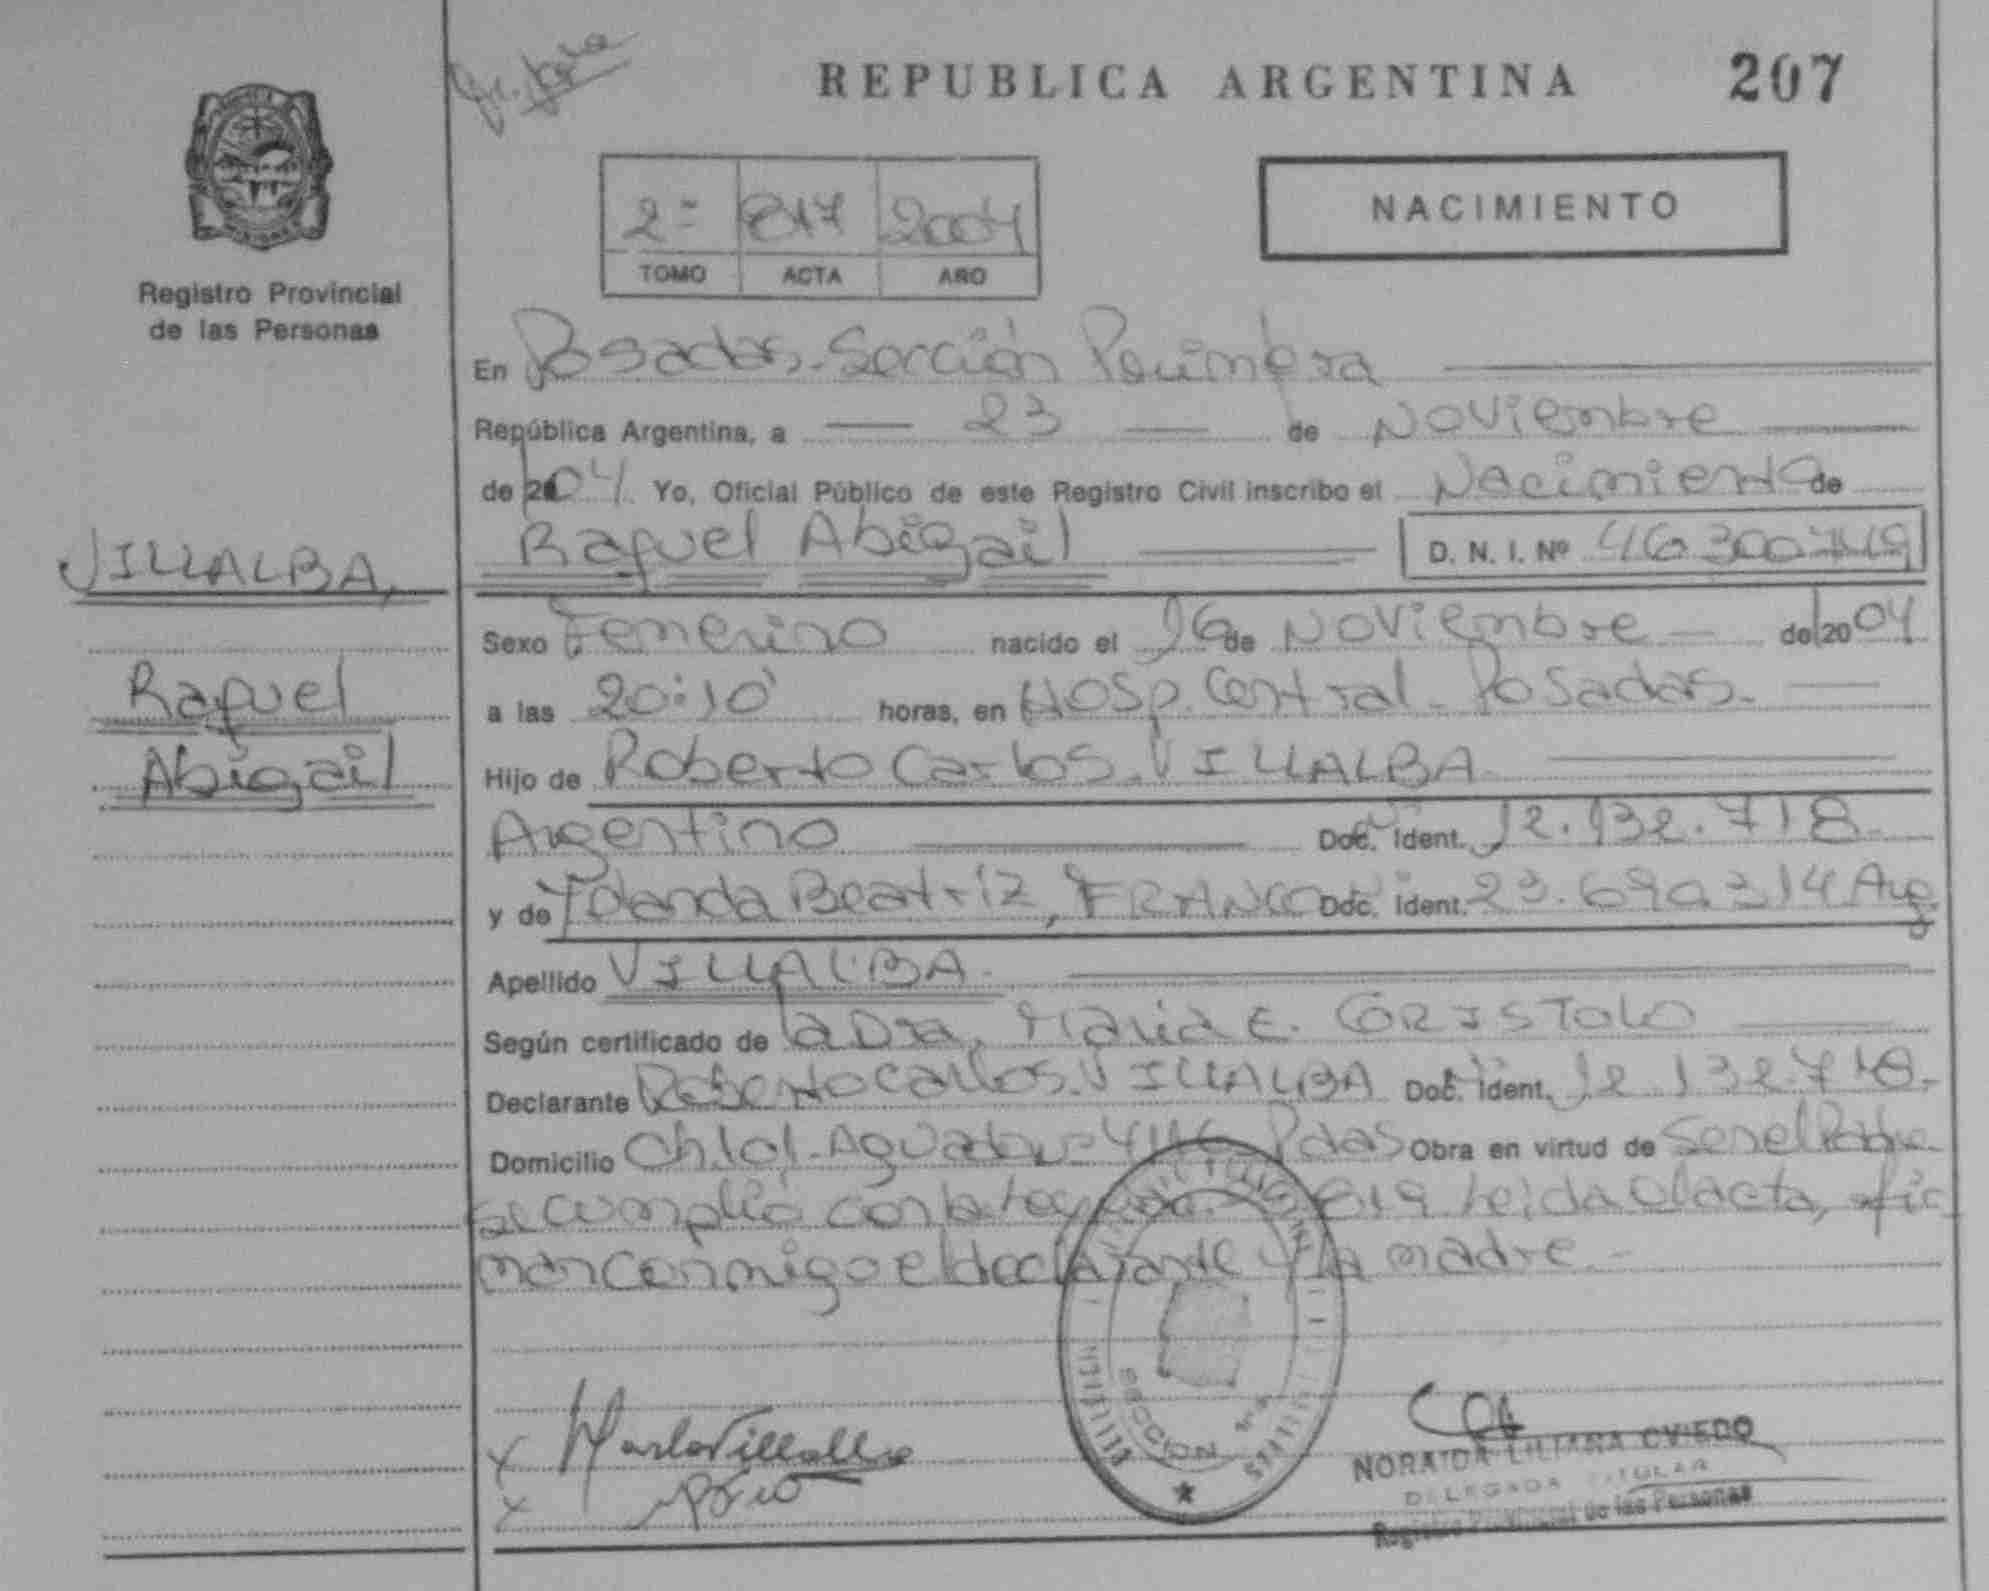 REPUBLICA ARGENTINA 207
2= 817 2004
TOMO ACTA AÑO
NACIMIENTO
Registro Provincial
de las Personas
En Posadas - Sección Primera
República Argentina, a 23 de Noviembre
de 2004 Yo, Oficial Público de este Registro Civil inscribo el Nacimiento de
Raquel Abigail D. N. I. Nº 46300749
VILLALBA,
Raquel
Abigail
Sexo Femenino nacido el 16 de Noviembre de 2004
a las 20:10' horas, en Hosp. Central - Posadas.
Hijo de Roberto Carlos VILLALBA
Argentino Doc. Ident. 12.132.718
y de Yolanda Beatriz, FRANCO Doc. Ident. 23.690.314 Arg.
Apellido VILLALBA.
Según certificado de la Dra. Maria E. CORISTOLO
Declarante Roberto Carlos VILLALBA Doc. Ident. 12.132.718.
Domicilio Ch. 101 - Pdas Obra en virtud de Ser el Padre
se cumplió con la ley Leida el acta, fir
man conmigo el declarante y la madre.
SECCION
NORAIDA LILIANA OVIEDO
DELEGADA TITULAR
Registro Provincial de las Personas